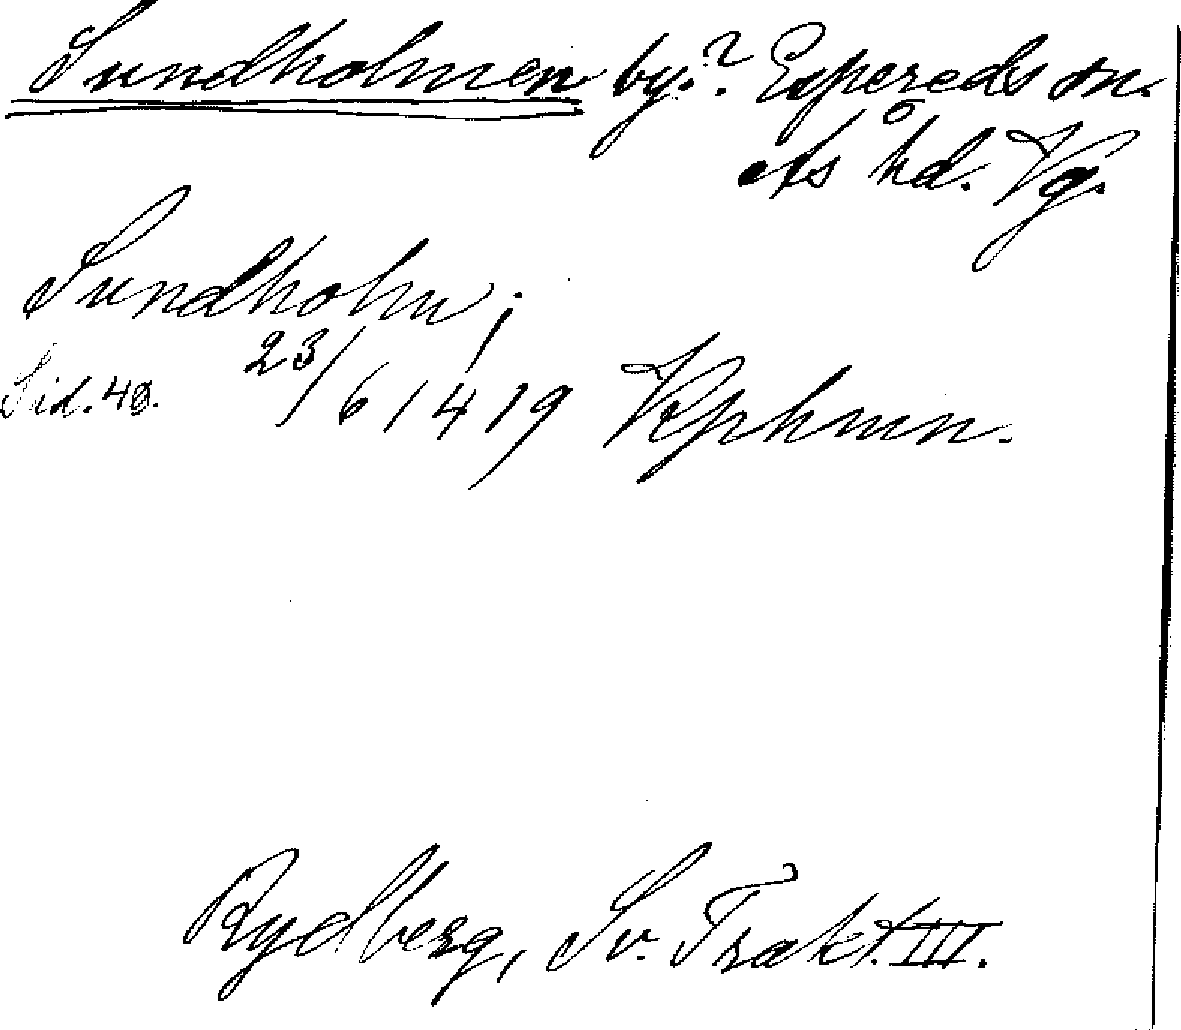 Sundholmen by? Espereds sn.
Ås hd. Vg.
Sundholm;
23/6 1419 Kphmn.
Sid. 48.
Rydberg, Sv. Trakt. III.